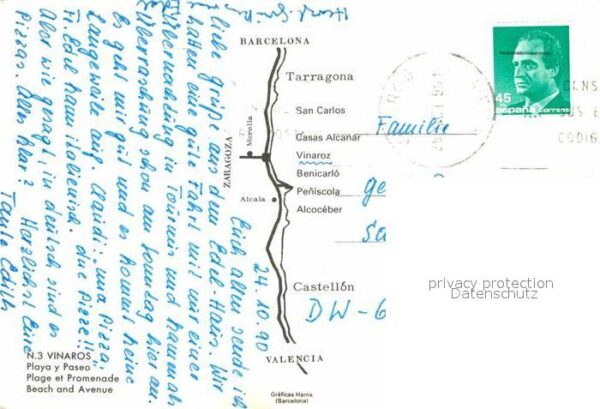 24.10.90
Euch allen sende ich
liebe Grüße aus dem Edel-Haus. Wir
hatten eine gute Fahrt mit einer
Übernachtung in Tournus und kamen
Überraschung schon am Sonntag hier an.
Es geht mir gut und es kommt keine
Langeweile auf.
Fr. Edel kann italienisch. due Pizze!!
Aber wie gesagt, in deutsch sind es
Pizzas. Alles klar? Herzlichst Eure
Tante Edith
BARCELONA
Tarragona
San Carlos
Casas Alcanar
Vinaroz
Benicarló
Peñíscola
Alcocéber
Castellón
VALENCIA
ZARAGOZA
Morella
Alcala
Familie
DW-6
45
españa correos
privacy protection
Datenschutz
N.3 VINAROS
Playa y Paseo
Plage et Promenade
Beach and Avenue
Gráficas Harris
(Barcelona)